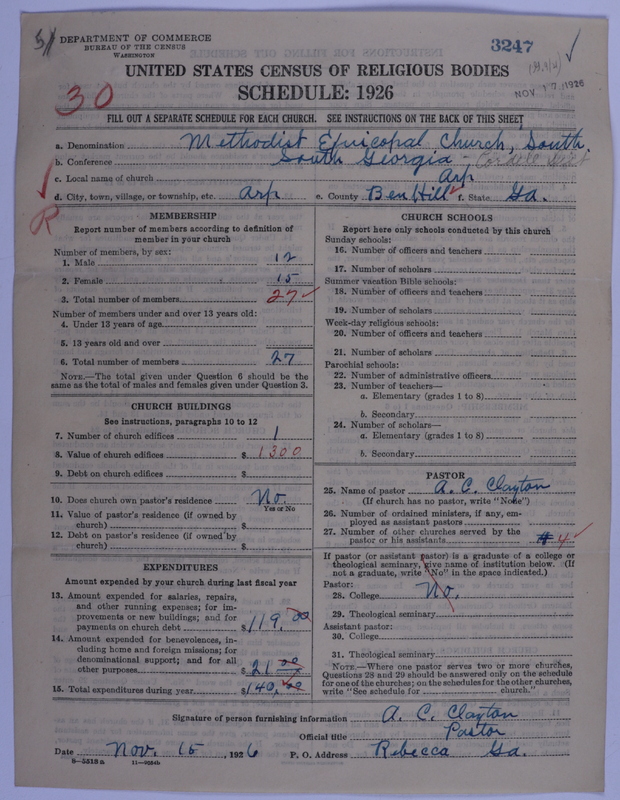 51 DEPARTMENT OF COMMERCE
BUREAU OF THE CENSUS
WASHINGTON
3247
NOV 17 1926
UNITED STATES CENSUS OF RELIGIOUS BODIES
SCHEDULE: 1926
30
FILL OUT A SEPARATE SCHEDULE FOR EACH CHURCH. SEE INSTRUCTIONS ON THE BACK OF THIS SHEET
a. Denomination Methodist Episcopal Church, South.
b. Conference South Georgia - Cordele Dist
c. Local name of church Arp
d. City, town, village, or township, etc. Arp e. County Ben Hill f. State Ga.
R
MEMBERSHIP
Report number of members according to definition of
member in your church
Number of members, by sex:
1. Male 12
2. Female 15
3. Total number of members 27
Number of members under and over 13 years old:
4. Under 13 years of age
5. 13 years old and over
6. Total number of members 27
NOTE.—The total given under Question 6 should be the
same as the total of males and females given under Question 3.
CHURCH BUILDINGS
See instructions, paragraphs 10 to 12
7. Number of church edifices 1
8. Value of church edifices $ 1300
9. Debt on church edifices $
10. Does church own pastor's residence No.
Yes or No
11. Value of pastor's residence (if owned by
church) $
12. Debt on pastor's residence (if owned by
church) $
EXPENDITURES
Amount expended by your church during last fiscal year
13. Amount expended for salaries, repairs,
and other running expenses; for im-
provements or new buildings; and for
payments on church debt $ 119.00
14. Amount expended for benevolences, in-
cluding home and foreign missions; for
denominational support; and for all
other purposes $ 21 00
15. Total expenditures during year $ 140.00
CHURCH SCHOOLS
Report here only schools conducted by this church
Sunday schools:
16. Number of officers and teachers
17. Number of scholars
Summer vacation Bible schools:
18. Number of officers and teachers
19. Number of scholars
Week-day religious schools:
20. Number of officers and teachers
21. Number of scholars
Parochial schools:
22. Number of administrative officers
23. Number of teachers—
a. Elementary (grades 1 to 8)
b. Secondary
24. Number of scholars—
a. Elementary (grades 1 to 8)
b. Secondary
PASTOR
25. Name of pastor A. C. Clayton
(If church has no pastor, write "None")
26. Number of ordained ministers, if any, em-
ployed as assistant pastors
27. Number of other churches served by the
pastor or his assistants 4
If pastor (or assistant pastor) is a graduate of a college or
theological seminary, give name of institution below. (If
not a graduate, write "No" in the space indicated.)
Pastor:
28. College No.
29. Theological seminary
Assistant pastor:
30. College
31. Theological seminary
NOTE.—Where one pastor serves two or more churches,
Questions 28 and 29 should be answered only on the schedule
for one of the churches; on the schedules for the other churches,
write "See schedule for church."
Signature of person furnishing information A. C. Clayton
Official title Pastor
Date Nov. 15, 1926 P. O. Address Rebecca Ga.
8—5518 a 11—9554b